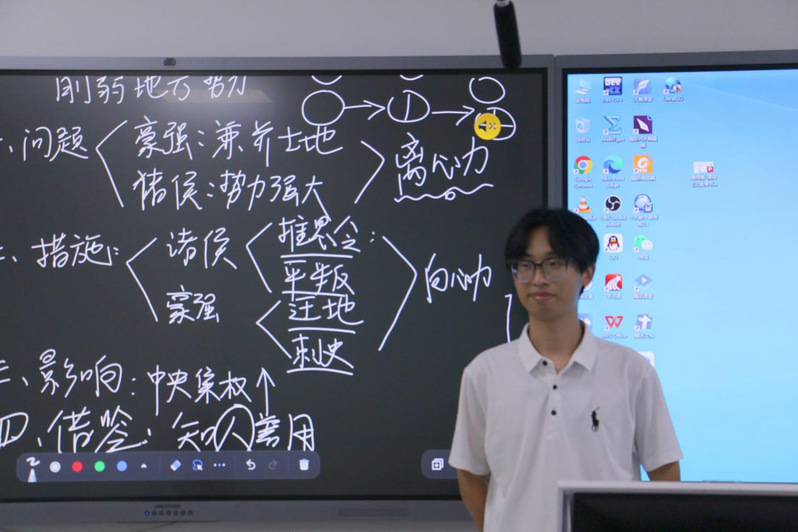 削弱地方势力
一、问题
豪强：兼并土地
猪侯：势力强大
离心力
二、措施：
诸侯
推恩令：
平叛
豪强
迁地
刺史
向心力
三、影响：中央集权↑
四、借鉴：知人善用